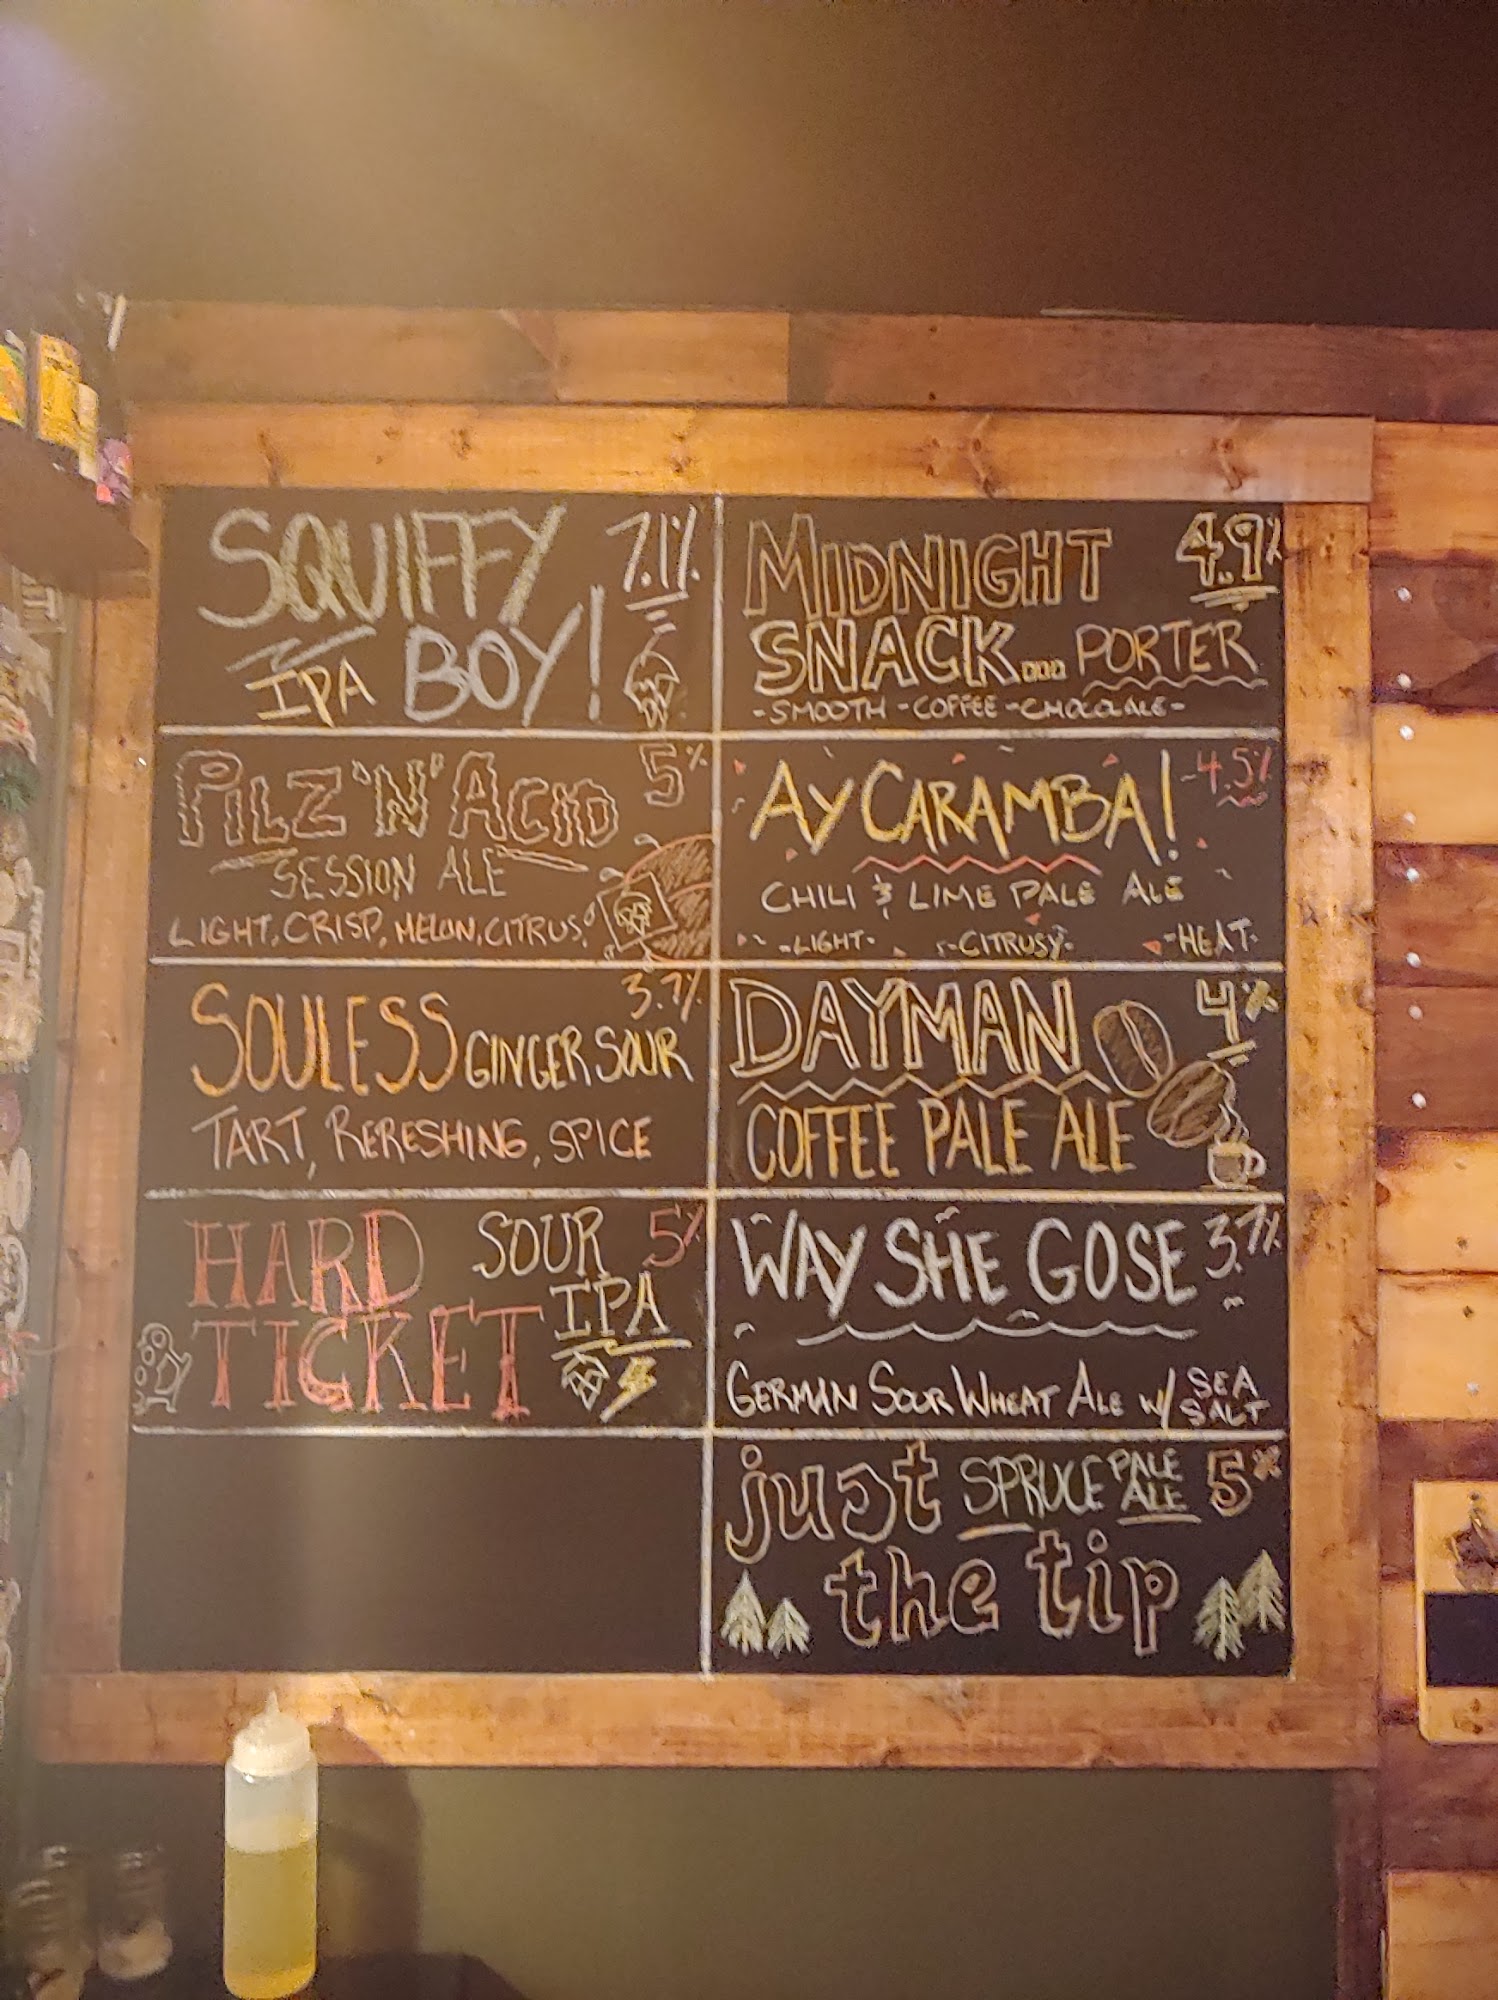 SQUIFFY 7.1%
IPA BOY!
PILZ 'N' ACID 5%
SESSION ALE
LIGHT, CRISP, MELON, CITRUS
SOULESS GINGER SOUR 3.7%
TART, RERESHING, SPICE
HARD SOUR 5%
TICKET IPA
MIDNIGHT 4.9%
SNACK... PORTER
-SMOOTH -COFFEE -CHOCOLATE-
AY CARAMBA! -4.5%
CHILI & LIME PALE ALE
-LIGHT- -CITRUSY- -HEAT-
DAYMAN 4%
COFFEE PALE ALE
WAY SHE GOSE 3.7%
GERMAN SOUR WHEAT ALE W/ SEA SALT
just SPRUCE PALE ALE 5%
the tip